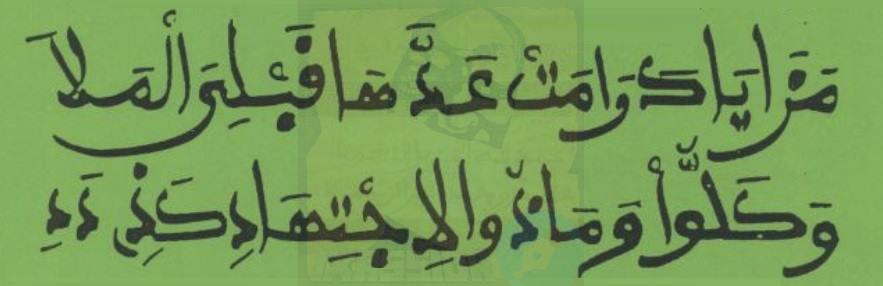 مَزَايَاكَ رَامَتْ عَدَّهَا قَبْلِيَ الْمَلَا
وَكَلُّواْ وَمَا ذُو الِاجْتِهَادِ كَذِي دَدِ